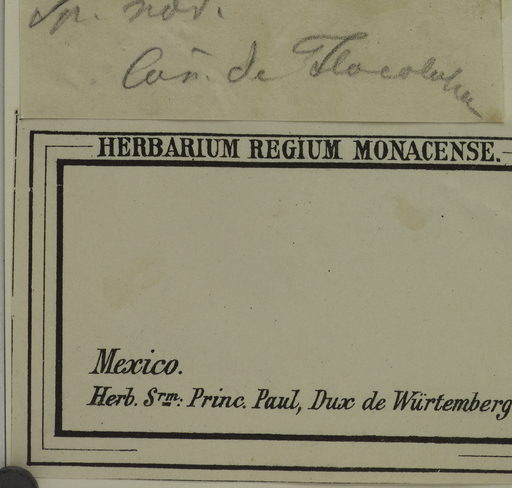 Sp. nov.
Cañ. de Tlacolula
HERBARIUM REGIUM MONACENSE.
Mexico.
Herb. Srm: Princ. Paul, Dux de Würtemberg